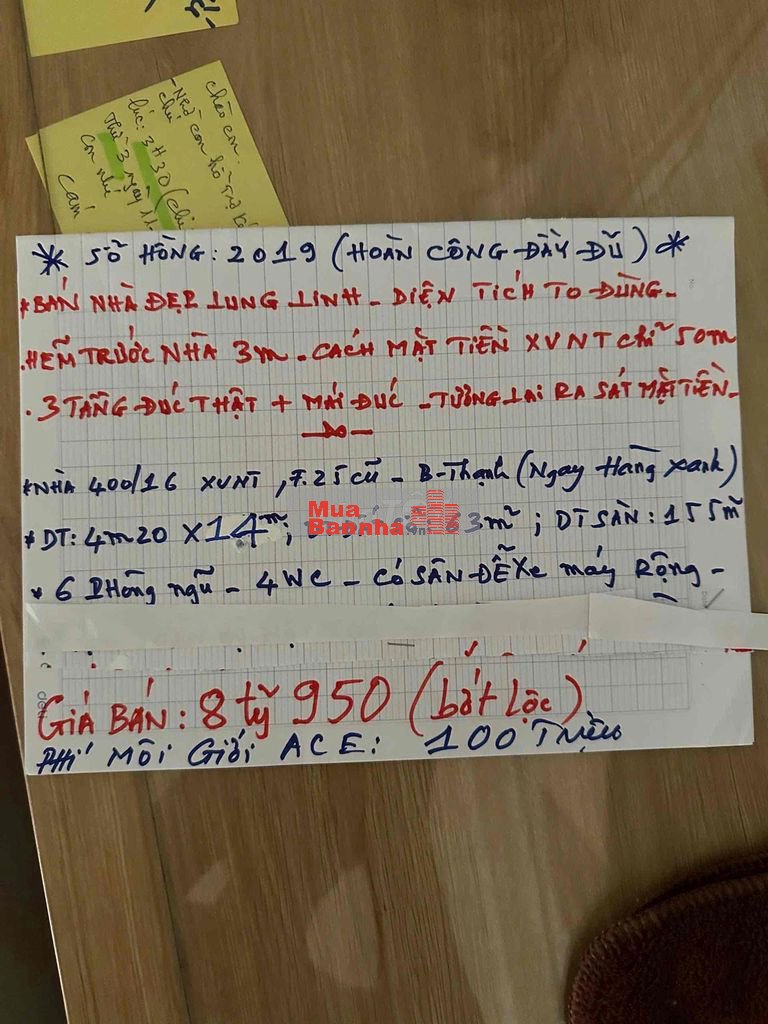 chào con.
- Nhờ con hỗ trợ
chú
lúc: 3H30 (chiều
Thứ 3 ngày
con nhé
Cám
* SỔ HỒNG: 2019 (HOÀN CÔNG ĐẦY ĐŨ) *
* BÁN NHÀ ĐẸP LUNG LINH - DIỆN TÍCH TO ĐÙNG -
. HẺM TRƯỚC NHÀ 3m - CÁCH MẶT TIỀN XVNT chỉ 50m
. 3 TẦNG ĐÚC THẬT + MÁI ĐÚC - TƯƠNG LAI RA SÁT MẶT TIỀN -
* NHÀ 400/16 XVNT, F.25 cũ - B-Thạnh (Ngay Hàng Xanh)
* DT: 4m20 x 14m; 63m²; DT SÀN: 155m²
* 6 Phòng ngũ - 4 WC - CÓ SÂN ĐỄ Xe máy Rộng -
Mua
Bannha
GIÁ BÁN: 8 tỷ 950 (bớt lộc)
Phí MÔI Giới ACE: 100 Triệu